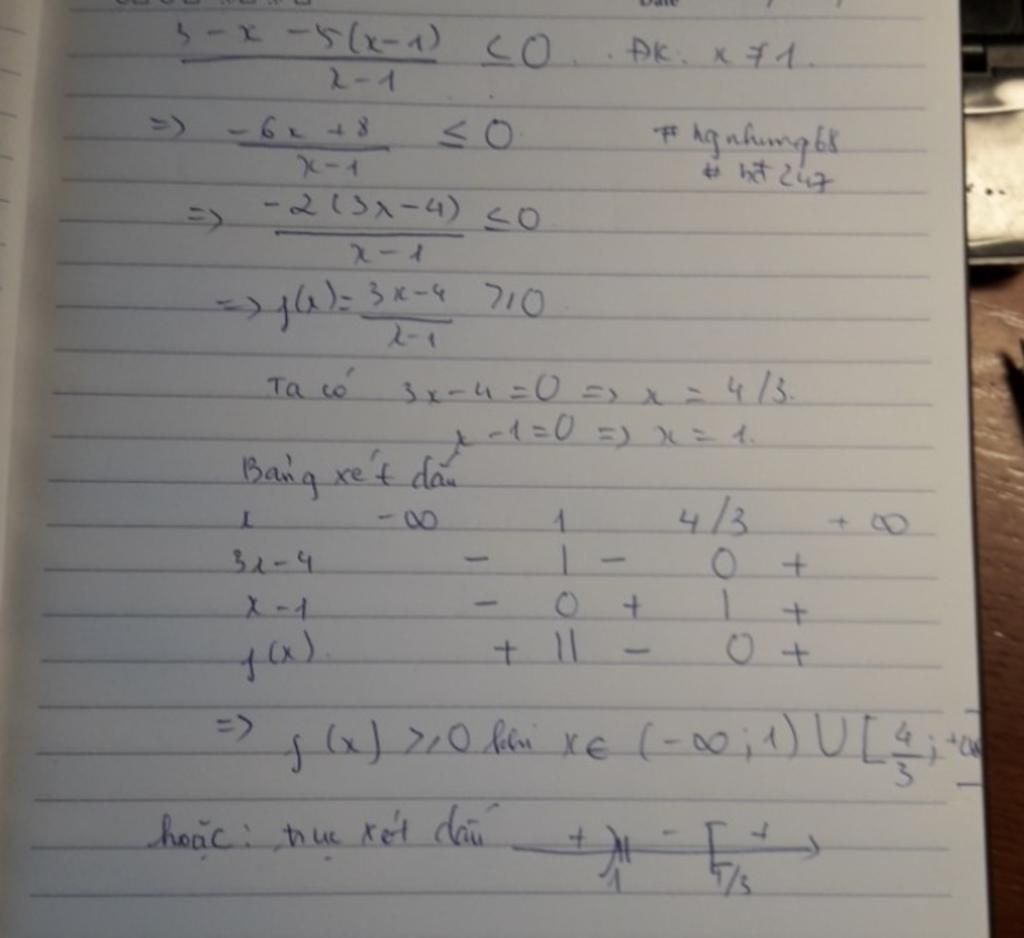 Date
3 - x - 5(x-1) / x-1 ≤ 0 . ĐK: x ≠ 1.
=> -6x + 8 / x-1 ≤ 0
# hgnhung68
# ht 247
=> -2(3x-4) / x-1 ≤ 0
=> f(x) = 3x-4 / x-1 ≥ 0
Ta có 3x-4 = 0 => x = 4/3.
x-1=0 => x = 1.
Bảng xét dấu
x -∞ 1 4/3 +∞
3x-4 - | - 0 +
x-1 - 0 + | +
f(x) + || - 0 +
=> f(x) ≥ 0 khi x∈ (-∞; 1) U [4/3; +∞
hoặc: trục xét dấu + )|| - [ +
1 4/3